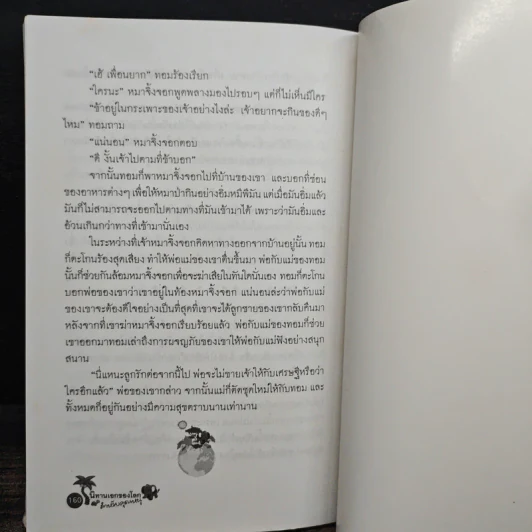 "เฮ้ เพื่อนยาก" ทอมร้องเรียก
"ใครนะ" หมาจิ้งจอกพูดพลางมองไปรอบๆ แต่ก็ไม่เห็นมีใคร
"ข้าอยู่ในกระเพาะของเจ้าอย่างไงล่ะ เจ้าอยากจะกินของดีๆ
ไหม" ทอมถาม
"แน่นอน" หมาจิ้งจอกตอบ
"ดี งั้นเจ้าไปตามที่ข้าบอก"
จากนั้นทอมก็พาหมาจิ้งจอกไปที่บ้านของเขา และบอกที่ซ่อน
ของอาหารต่างๆ เพื่อให้หมาป่ากินอย่างอิ่มหมีพีมัน แต่เมื่อมันอิ่มแล้ว
มันก็ไม่สามารถจะออกไปตามทางที่มันเข้ามาได้ เพราะว่ามันอิ่มและ
อ้วนเกินกว่าทางที่เข้ามานั่นเอง
ในระหว่างที่เจ้าหมาจิ้งจอกคิดหาทางออกจากบ้านอยู่นั้น ทอม
ก็ตะโกนร้องสุดเสียง ทำให้พ่อแม่ของเขาตื่นขึ้นมา พ่อกับแม่ของทอม
นั้นก็ช่วยกันล้อมหมาจิ้งจอกเพื่อจะฆ่าเสียในทันใดนั่นเอง ทอมก็ตะโกน
บอกพ่อของเขาว่าเขาอยู่ในท้องหมาจิ้งจอก แน่นอนล่ะว่าพ่อกับแม่
ของเขาจะต้องดีใจอย่างเป็นที่สุดที่เขาจะได้ลูกชายของเขากลับคืนมา
หลังจากที่เขาฆ่าหมาจิ้งจอกเรียบร้อยแล้ว พ่อกับแม่ของทอมก็ช่วย
เขาออกมาทอมเล่าถึงการผจญภัยของเขาให้พ่อกับแม่ฟังอย่างสนุก
สนาน
"นี่แหนะลูกรักต่อจากนี้ไป พ่อจะไม่ขายเจ้าให้กับเศรษฐีหรือว่า
ใครอีกแล้ว" พ่อของเขากล่าว จากนั้นแม่ก็ตัดชุดใหม่ให้กับทอม และ
ทั้งหมดก็อยู่กันอย่างมีความสุขตราบนานเท่านาน
160 นิทานเอกของโลก